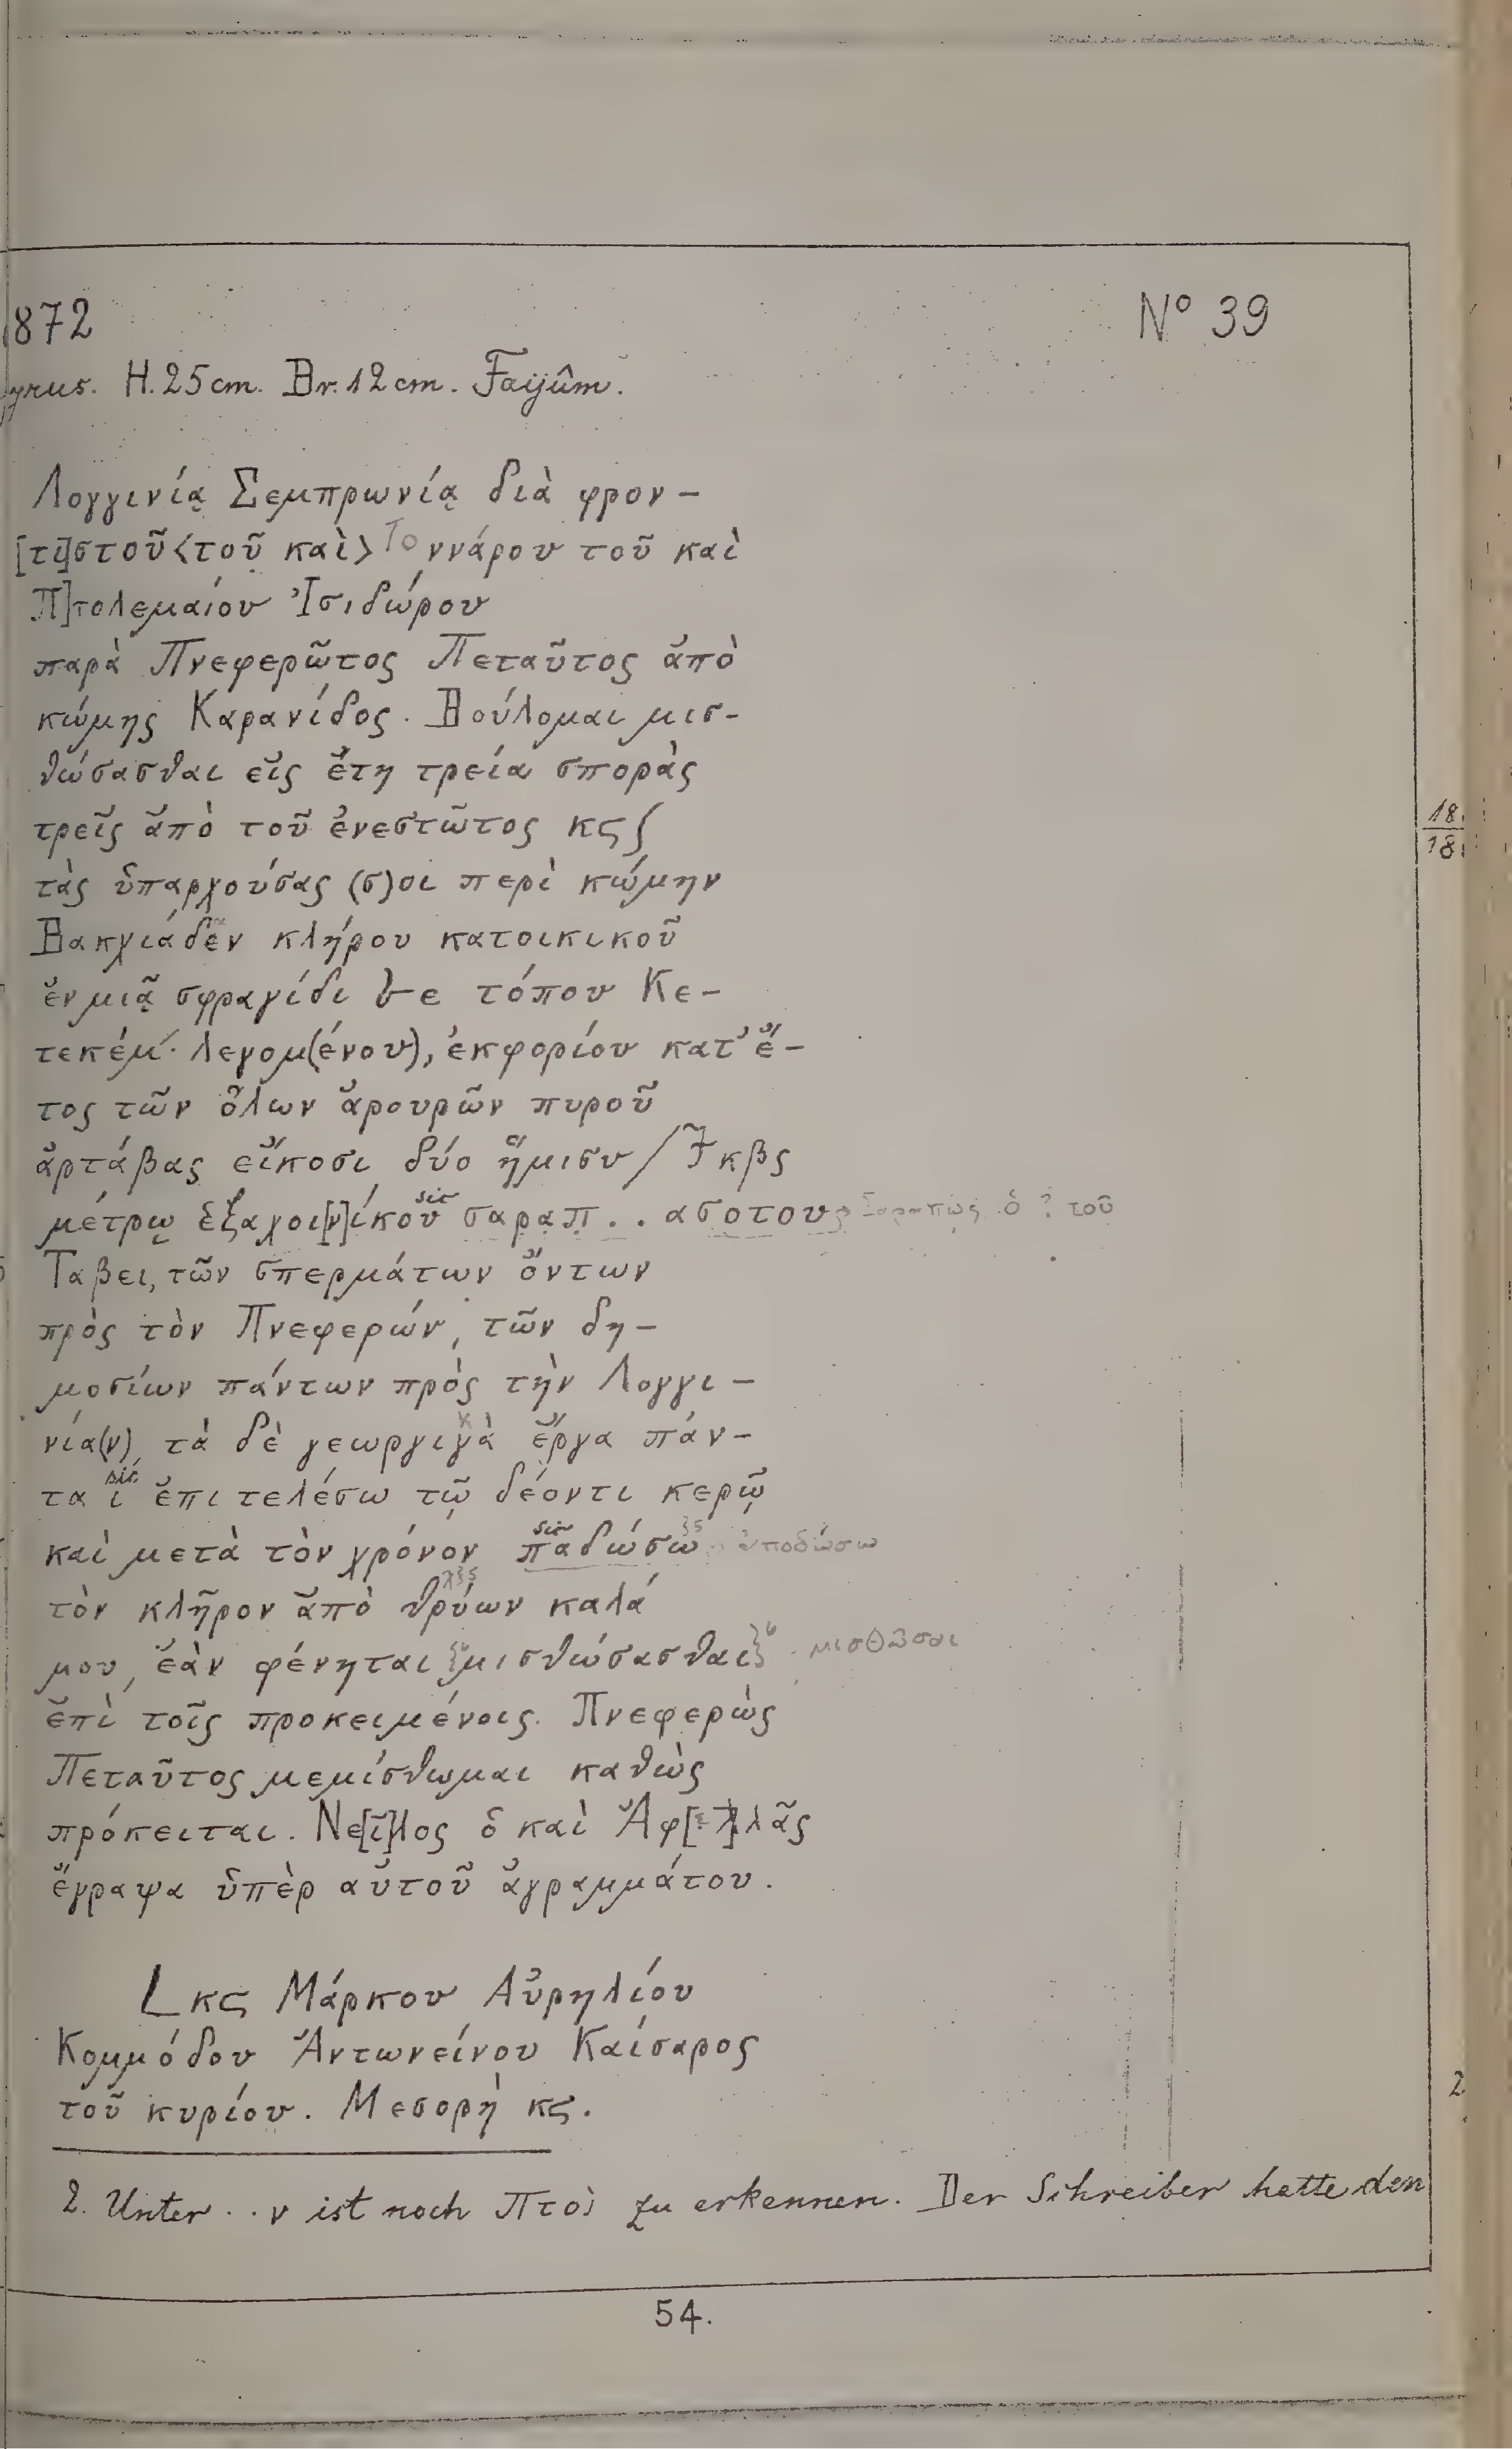 872
N° 39
H. 25 cm. Br. 12 cm. Faijûm.
Λογγινίᾳ Σεμπρωνίᾳ διὰ φρον-
[τι]στοῦ <τοῦ καὶ> Το ννάρου τοῦ καὶ
Π]τολεμαίου Ἰσιδώρου
παρὰ Πνεφερῶτος Πεταῦτος ἀπὸ
κώμης Καρανίδος. Βούλομαι μισ-
θώσασθαι εἰς ἔτη τρεία σπορὰς
τρεῖς ἀπὸ τοῦ ἐνεστῶτος κϛ ʃ
τὰς ὑπαρχούσας (σ)οι περὶ κώμην
Βακχιάδεν κλήρου κατοικικοῦ
ἐν μιᾷ σφραγίδι 𐅹 ε τόπου Κε-
τεκέμ· λεγομ(ένου), ἐκφορίου κατ' ἔ-
τος τῶν ὅλων ἀρουρῶν πυροῦ
ἀρτάβας εἴκοσι δύο ἥμισυ / κβϛ
μέτρῳ ἑξαχοι[ν]ίκου sic σαραπ . . ασοτου Σαραπως ὁ ? τοῦ
Ταβει, τῶν σπερμάτων ὄντων
πρὸς τὸν Πνεφερών, τῶν δη-
μοσίων πάντων πρὸς τὴν Λογγι-
νία(ν), τὰ δὲ γεωργιγὰ κ ἔργα πάν-
τα ι sic ἐπιτελέσω τῷ δέοντι κερῷ
καὶ μετὰ τὸν χρόνον παδώσω sic ἀποδώσω
τὸν κλῆρον ἀπὸ θρύων καλά
μου, ἐὰν φένηται {μισθώσασθαι} μισθῶσαι
ἐπὶ τοῖς προκειμένοις. Πνεφερὼς
Πεταῦτος μεμίσθωμαι καθὼς
πρόκειται. Νε[ῖ]λος ὁ καὶ Ἀφ[.]λᾶς
ἔγραψα ὑπὲρ αὐτοῦ ἀγραμμάτου.
L κϛ Μάρκου Αὐρηλίου
Κομμόδου Ἀντωνείνου Καίσαρος
τοῦ κυρίου. Μεσορὴ κϛ.
2. Unter . . ν ist noch Πτολ zu erkennen. Der Schreiber hatte den
54.